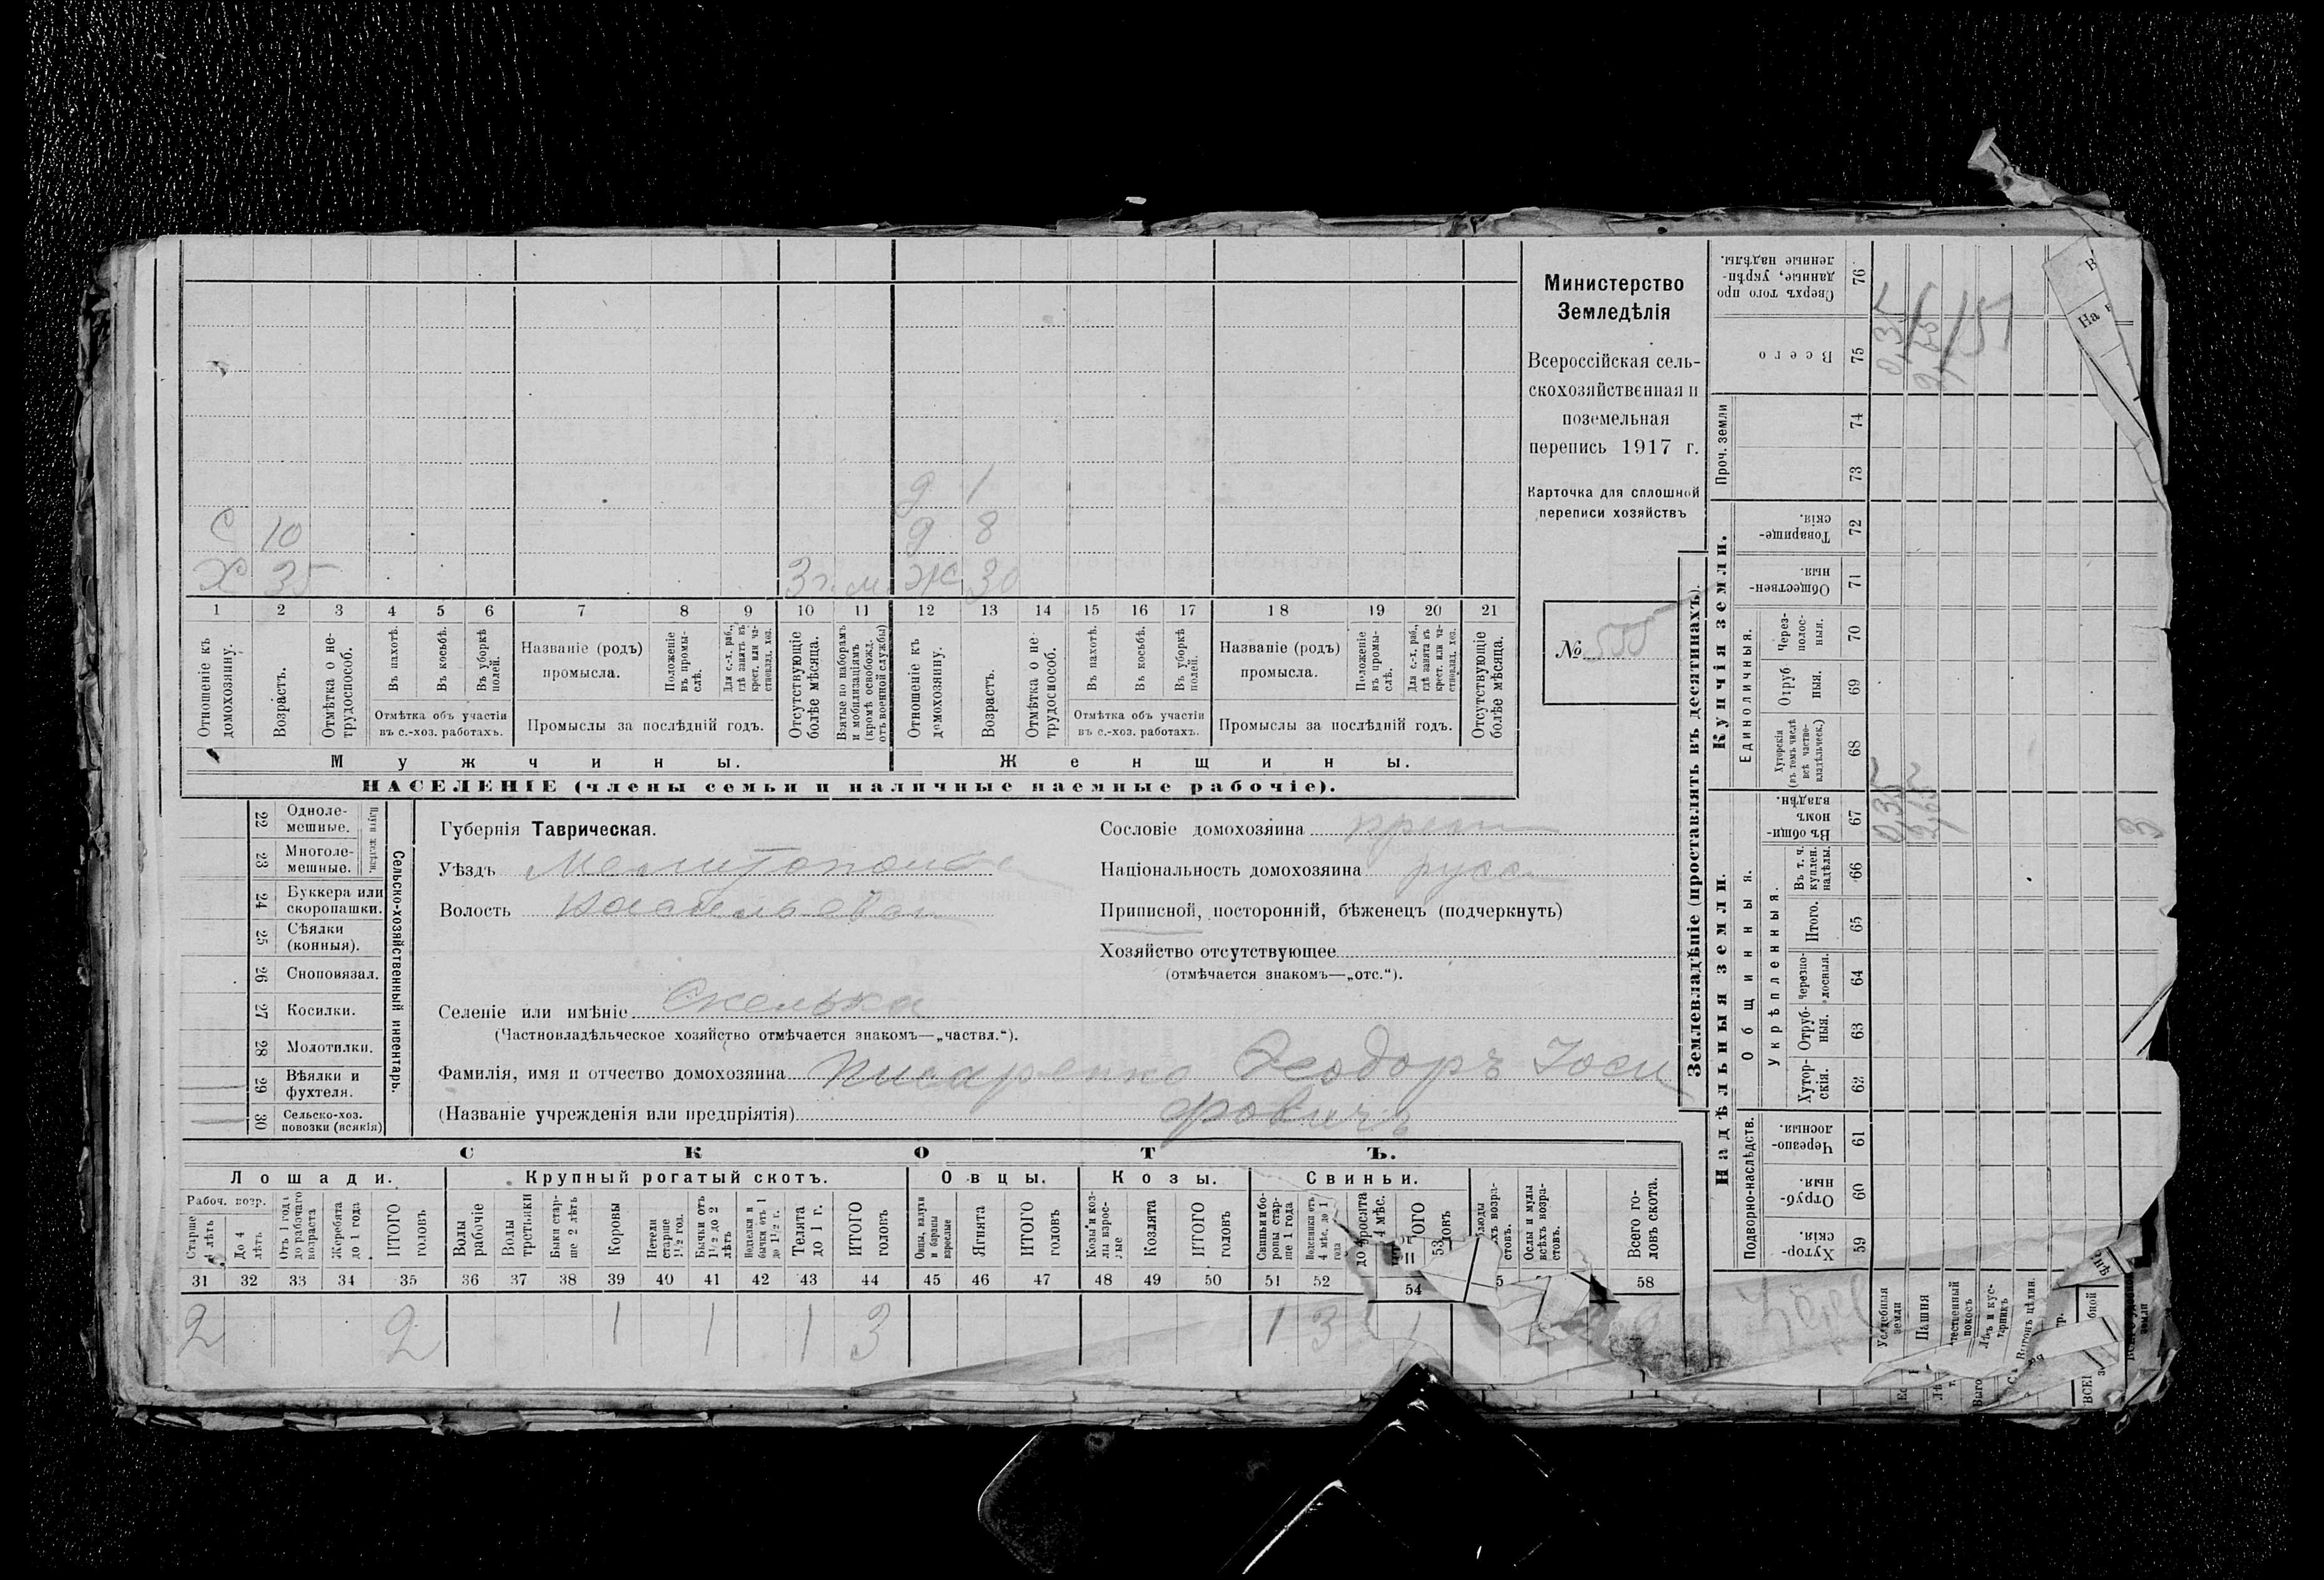 Министерство
Земледѣлія
Всероссійская сель-
скохозяйственная и
поземельная
перепись 1917 г.
Карточка для сплошной
переписи хозяйствъ
№ 555
д 1
С 10 д 8
Х 35 3 г. м. Ж 30
1 2 3 4 5 6 7 8 9 10 11 12 13 14 15 16 17 18 19 20 21
Отношеніе къ домохозяину.
Возрастъ.
Отмѣтка о нетрудоспособ.
Въ пахотѣ.
Въ косьбѣ.
Въ уборкѣ полей.
Отмѣтка объ участіи
въ с.-хоз. работахъ.
Названіе (родъ)
промысла.
Положеніе въ промыслѣ.
Для с.-х. раб., гдѣ занятъ въ крест. или частновлад. хоз.
Промыслы за послѣдній годъ.
Отсутствующіе болѣе мѣсяца.
Взятые по наборамъ и мобилизаціямъ (кромѣ освобожд. отъ военной службы)
Отношеніе къ домохозяину.
Возрастъ.
Отмѣтка о нетрудоспособ.
Въ пахотѣ.
Въ косьбѣ.
Въ уборкѣ полей.
Отмѣтка объ участіи
въ с.-хоз. работахъ.
Названіе (родъ)
промысла.
Положеніе въ промыслѣ.
Для с.-х. раб., гдѣ занята въ крест. или частновлад. хоз.
Промыслы за послѣдній годъ.
Отсутствующіе болѣе мѣсяца.
Мужчины. Женщины.
НАСЕЛЕНІЕ (члены семьи и наличные наемные рабочіе).
22 Одноле-
мешные.
23 Многоле-
мешные.
24 Буккера или
скоропашки.
25 Сѣялки
(конныя).
26 Сноповязал.
27 Косилки.
28 Молотилки.
29 Вѣялки и
фухтеля.
30 Сельско-хоз.
повозки (всякія)
Сельско-хозяйственный инвентарь.
Губернія Таврическая.
Уѣздъ
Волость
Селеніе или имѣніе Скелька
(Частновладѣльческое хозяйство отмѣчается знакомъ—„частвл.“).
Фамилія, имя и отчество домохозяина Писаренко Ѳеодоръ Іоси
(Названіе учрежденія или предпріятія) фовичъ
Сословіе домохозяина крест
Національность домохозяина русс
Приписной, посторонній, бѣженецъ (подчеркнуть)
Хозяйство отсутствующее
(отмѣчается знакомъ—„отс.“).
СКОТЪ.
Лошади. Крупный рогатый скотъ. Овцы. Козы. Свиньи.
Рабоч. возр.
Старше 4 лѣтъ
До 4 лѣтъ
Отъ 1 года до рабочаго возраста
Жеребята до 1 года
ИТОГО головъ
Волы рабочіе
Волы третьяки
Быки старше 2 лѣтъ
Коровы
Нетели старше 1½ год.
Бычки отъ 1½ до 2 лѣтъ
Неделки и бычки отъ 1 до 1½ г.
Телята до 1 г.
ИТОГО головъ
Овцы, валухи и бараны взрослые
Ягнята
ИТОГО головъ
Козы и козлы взрослые
Козлята
ИТОГО головъ
Свиньи и боровы старше 1 года
Подсвинки отъ 4 мѣс. до 1 года
Ослы и мулы всѣхъ возрастовъ.
Всего головъ скота.
31 32 33 34 35 36 37 38 39 40 41 42 43 44 45 46 47 48 49 50 51 52 53 54 58
2 2 1 1 1 3 1 3
Землевладѣніе (проставлять въ десятинахъ).
Надѣльныя земли. Купчія земли.
Подворно-наслѣдств.
Общинныя.
Укрѣпленныя.
Единоличныя.
Проч. земли
59 Хутор-
скія.
60 Отруб-
ныя.
61 Черезпо-
лосныя.
62 Хутор-
скія.
63 Отруб-
ныя.
64 Черезпо-
лосныя.
65 Итого.
66 Въ т. ч.
куплен.
надѣлы.
67 Въ общин-
номъ
владѣн.
68 Хуторскія
(въ томъ числѣ
всѣ частно-
владѣльческ.)
69 Отруб
ныя.
70 Через-
полос-
ныя.
71 Обществен-
ныя.
72 Товарище-
скія.
73
74
75 Всего
76 Сверхъ того про
данные, укрѣп-
ленные надѣлы.
Усадебныя
земли
0,35 0,35
Пашня
2,65
3